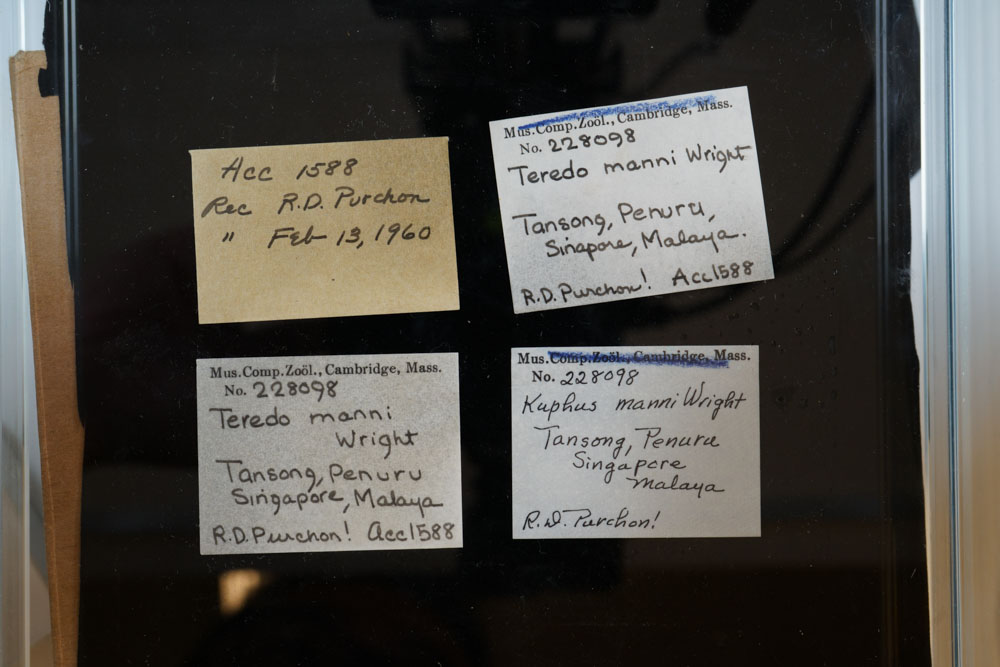 Acc 1588
Rec R.D. Purchon
" Feb 13, 1960
Mus. Comp. Zoöl., Cambridge, Mass.
No. 228098
Teredo manni Wright
Tansong, Penuru,
Sinapore, Malaya.
R.D. Purchon! Acc 1588
Mus. Comp. Zoöl., Cambridge, Mass.
No. 228098
Teredo manni
Wright
Tansong, Penuru
Singapore, Malaya
R.D. Purchon! Acc 1588
Mus. Comp. Zoöl., Cambridge, Mass.
No. 228098
Kuphus manni Wright
Tansong, Penuru
Singapore
Malaya
R.D. Purchon!